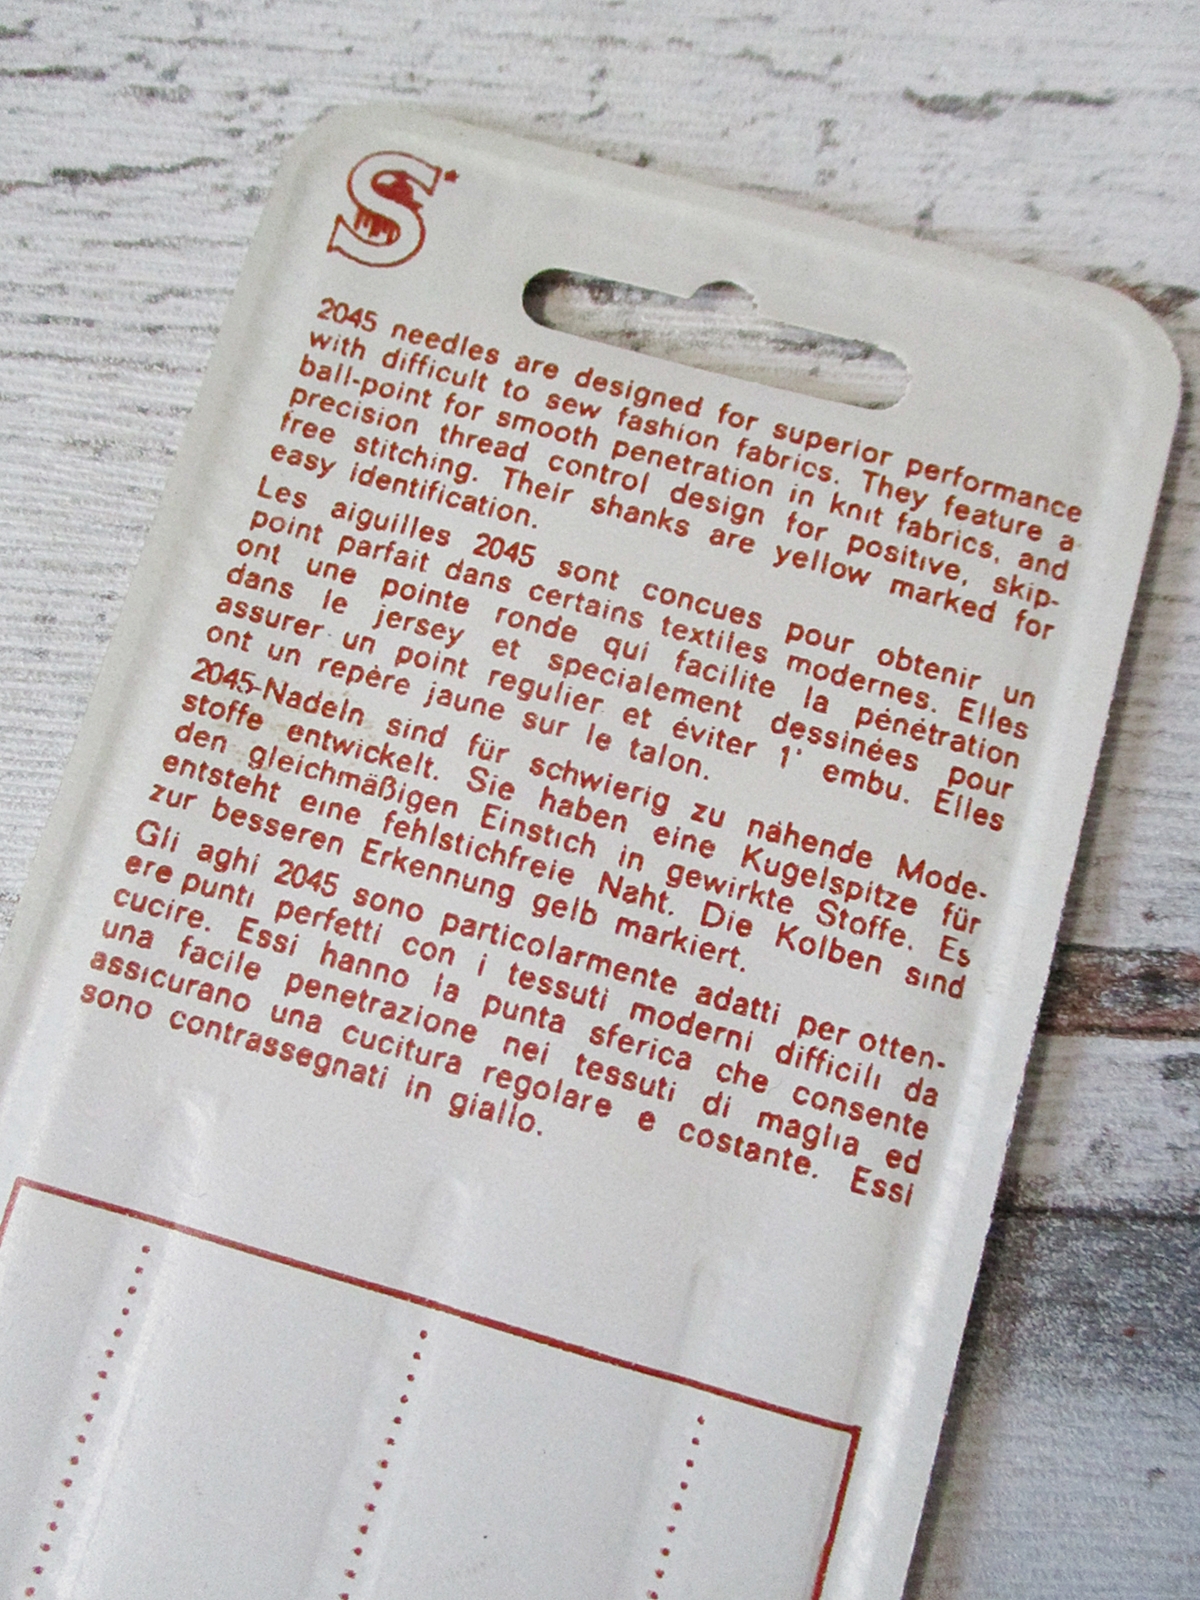 S*
2045 needles are designed for superior performance
with difficult to sew fashion fabrics. They feature a
ball-point for smooth penetration in knit fabrics, and
precision thread control design for positive, skip-
free stitching. Their shanks are yellow marked for
easy identification.
Les aiguilles 2045 sont concues pour obtenir un
point parfait dans certains textiles modernes. Elles
ont une pointe ronde qui facilite la pénétration
dans le jersey et specialement dessinées pour
assurer un point regulier et éviter l' embu. Elles
ont un repère jaune sur le talon.
2045-Nadeln sind für schwierig zu nähende Mode-
stoffe entwickelt. Sie haben eine Kugelspitze für
den gleichmäßigen Einstich in gewirkte Stoffe. Es
entsteht eine fehlstichfreie Naht. Die Kolben sind
zur besseren Erkennung gelb markiert.
Gli aghi 2045 sono particolarmente adatti per otten-
ere punti perfetti con i tessuti moderni difficili da
cucire. Essi hanno la punta sferica che consente
una facile penetrazione nei tessuti di maglia ed
assicurano una cucitura regolare e costante. Essi
sono contrassegnati in giallo.